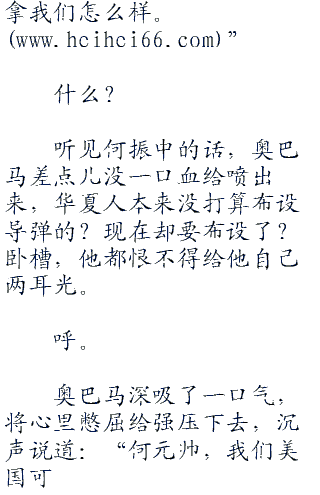 拿我们怎么样。
(www.hcihci66.com)”
什么？
听见何振中的话，奥巴
马差点儿没一口血给喷出
来，华夏人本来没打算布设
导弹的？现在却要布设了？
卧槽，他都恨不得给他自己
两耳光。
呼。
奥巴马深吸了一口气，
将心里憋屈给强压下去，沉
声说道：“何元帅，我们美
国可